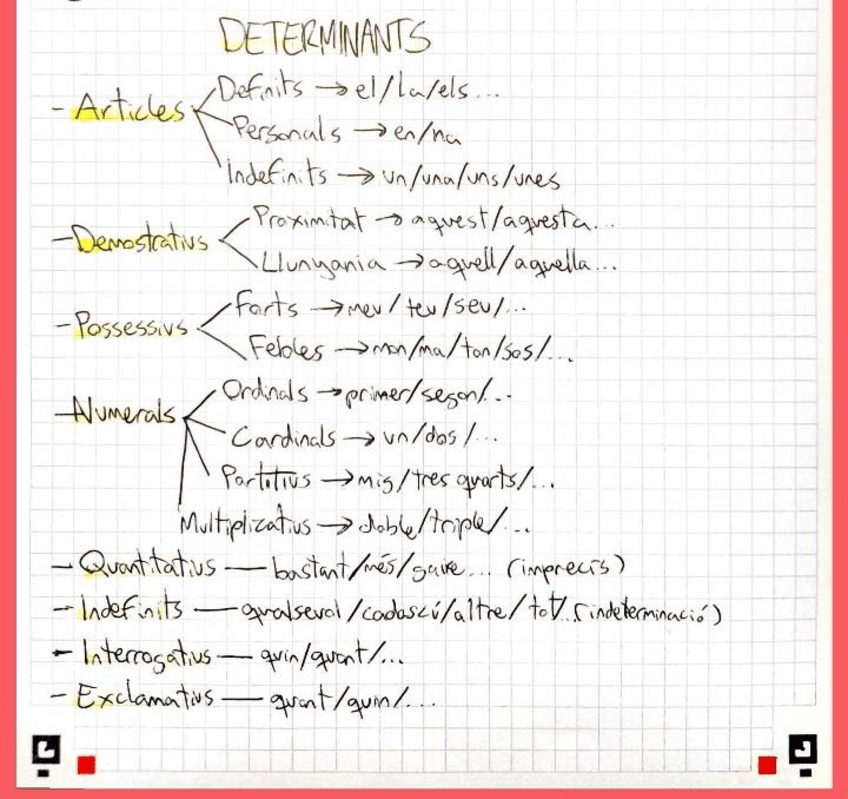 DETERMINANTS
- Articles
Definits → el/la/els...
Personals → en/na
Indefinits → un/una/uns/unes
- Demostratius
Proximitat → aquest/aquesta...
Llunyania → aquell/aquella...
- Possessius
Forts → meu/teu/seu/...
Febles → mon/ma/ton/sos/...
- Numerals
Ordinals → primer/segon/...
Cardinals → un/dos/...
Partitius → mig/tres quarts/...
Multiplicatius → doble/triple/...
- Quantitatius — bastant/més/gaire... (imprecís)
- Indefinits — qualsevol/cadascú/altre/tot/..(indeterminació)
- Interrogatius — quin/quant/...
- Exclamatius — quant/quin/...